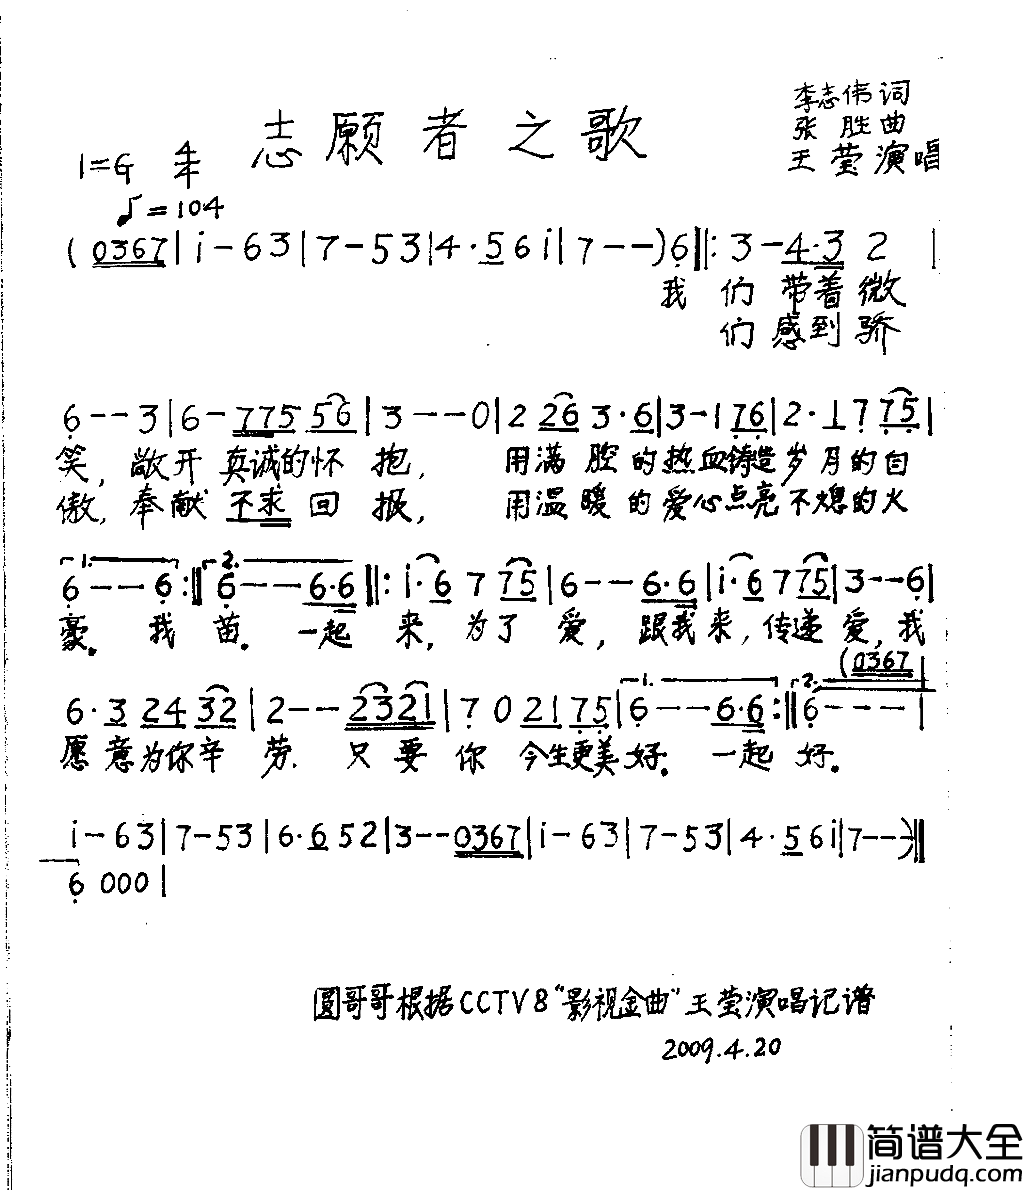 志愿者之歌
李志伟词
张胜曲
王莹演唱
1=G 4/4
♩=104
(0367|i-63|7-53|4·56i|7--)6‖:3-4·32|
我们带着微
们感到骄
6--3|6-77556|3---0|2263·6|3-176|2·1775|
笑,敞开真诚的怀抱,用满腔的热血铸造岁月的自
傲,奉献不求回报,用温暖的爱心点亮不熄的火
1. 2.
6--6:‖6--6·6‖:i·6775|6--6·6|i·6775|3--6|
豪。我苗。一起来,为了爱,跟我来,传递爱,我
(0367
1. 2.
6·32432|2--2321|702175|6--6·6:‖6---|
愿意为你辛劳.只要你今生更美好。一起好。
i-63|7-53|6·652|3--0367|i-63|7-53|4·56i|7--)‖
6000|
圆哥哥根据CCTV8"影视金曲"王莹演唱记谱
2009.4.20
简谱大全
jianpudq.com